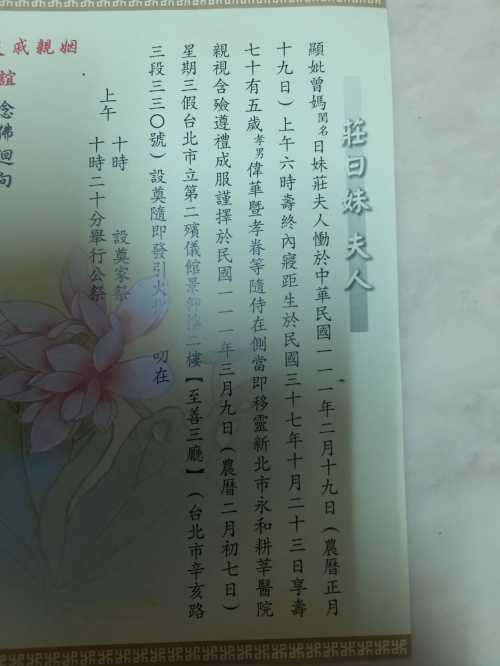 莊日妹夫人
顯妣曾媽閨名日妹莊夫人慟於中華民國一一一年二月十九日(農曆正月
十九日)上午六時壽終內寢距生於民國三十七年十月二十三日享壽
七十有五歲孝男偉華暨孝眷等隨侍在側當即移靈新北市永和耕莘醫院
親視含殮遵禮成服謹擇於民國一一一年三月九日(農曆二月初七日)
星期三假台北市立第二殯儀館景仰樓二樓【至善三廳】(台北市辛亥路
三段三三〇號)設奠隨即發引火 叨在
上午 十時 設奠家祭
十時二十分舉行公祭
戚親姻
誼
念佛迴向